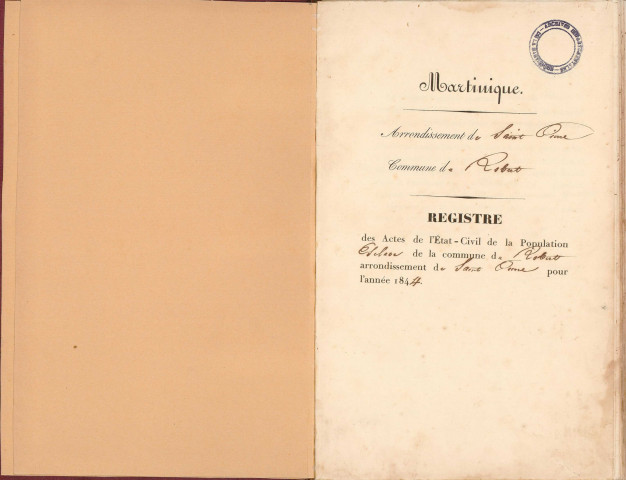 Martinique.
Arrondissement de Saint Pierre
Commune du Robert
REGISTRE
des Actes de l'État-Civil de la Population
de la commune du Robert
arrondissement de Saint Pierre pour
l'année 1844.